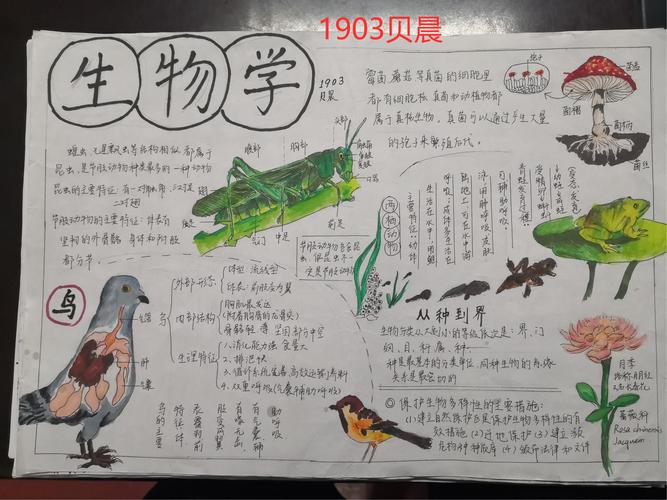 1903贝晨
生物学
1903
贝晨
蝗虫
都属于
昆虫，是节肢动物种类最多的一种动物
昆虫的主要特征：有一对触角
三对足
翅
节肢动物的主要特征：体表有
坚韧的外骨骼 身体和附肢
都分节。
腹部
胸部
头部
后足
气门
中足
前足
节肢动物包含昆
虫，但昆虫不一
霉菌 蘑菇 等真菌的细胞里
都有细胞核 真菌和动植物都
属于真核生物。真菌可以通过产生大量
的孢子来繁殖后代。
孢子
菌盖
菌褶
菌柄
菌丝
两栖动物
主要特征：幼体
生活在水中，用鳃
呼吸；成体多生活在
陆地上，可在水中游
泳，用肺呼吸，皮肤
可辅助呼吸
青蛙发育过程：
受精卵→蝌蚪
→幼蛙→成蛙
（变态发育）
鸟
外部形态
体型 流线型
体表
鸟
内部结构
胸肌最发达
骨骼轻 薄 坚固
生理特征
1、消化能力强 食量大
2、
3、
4、双重呼吸（气囊辅助呼吸）
气管
肺
气囊
鸟的主要
特征：体
表覆羽前
肢变成翼
有喙无齿
有气囊辅
助呼吸
从种到界
生物分类从大到小的等级依次是：界、门
纲、目、科、属、种。
种是最基本的分类单位，同种生物的亲缘
关系是最密切的
月季
蔷薇科
Rosa chinensis
Jacquin
◎ 保护生物多样性的主要措施：
(1)建立自然保护区是保护生物多样性的有
效措施 (2)迁地保护 (3)建立濒
危物种种质库 (4)颁布法律和文件